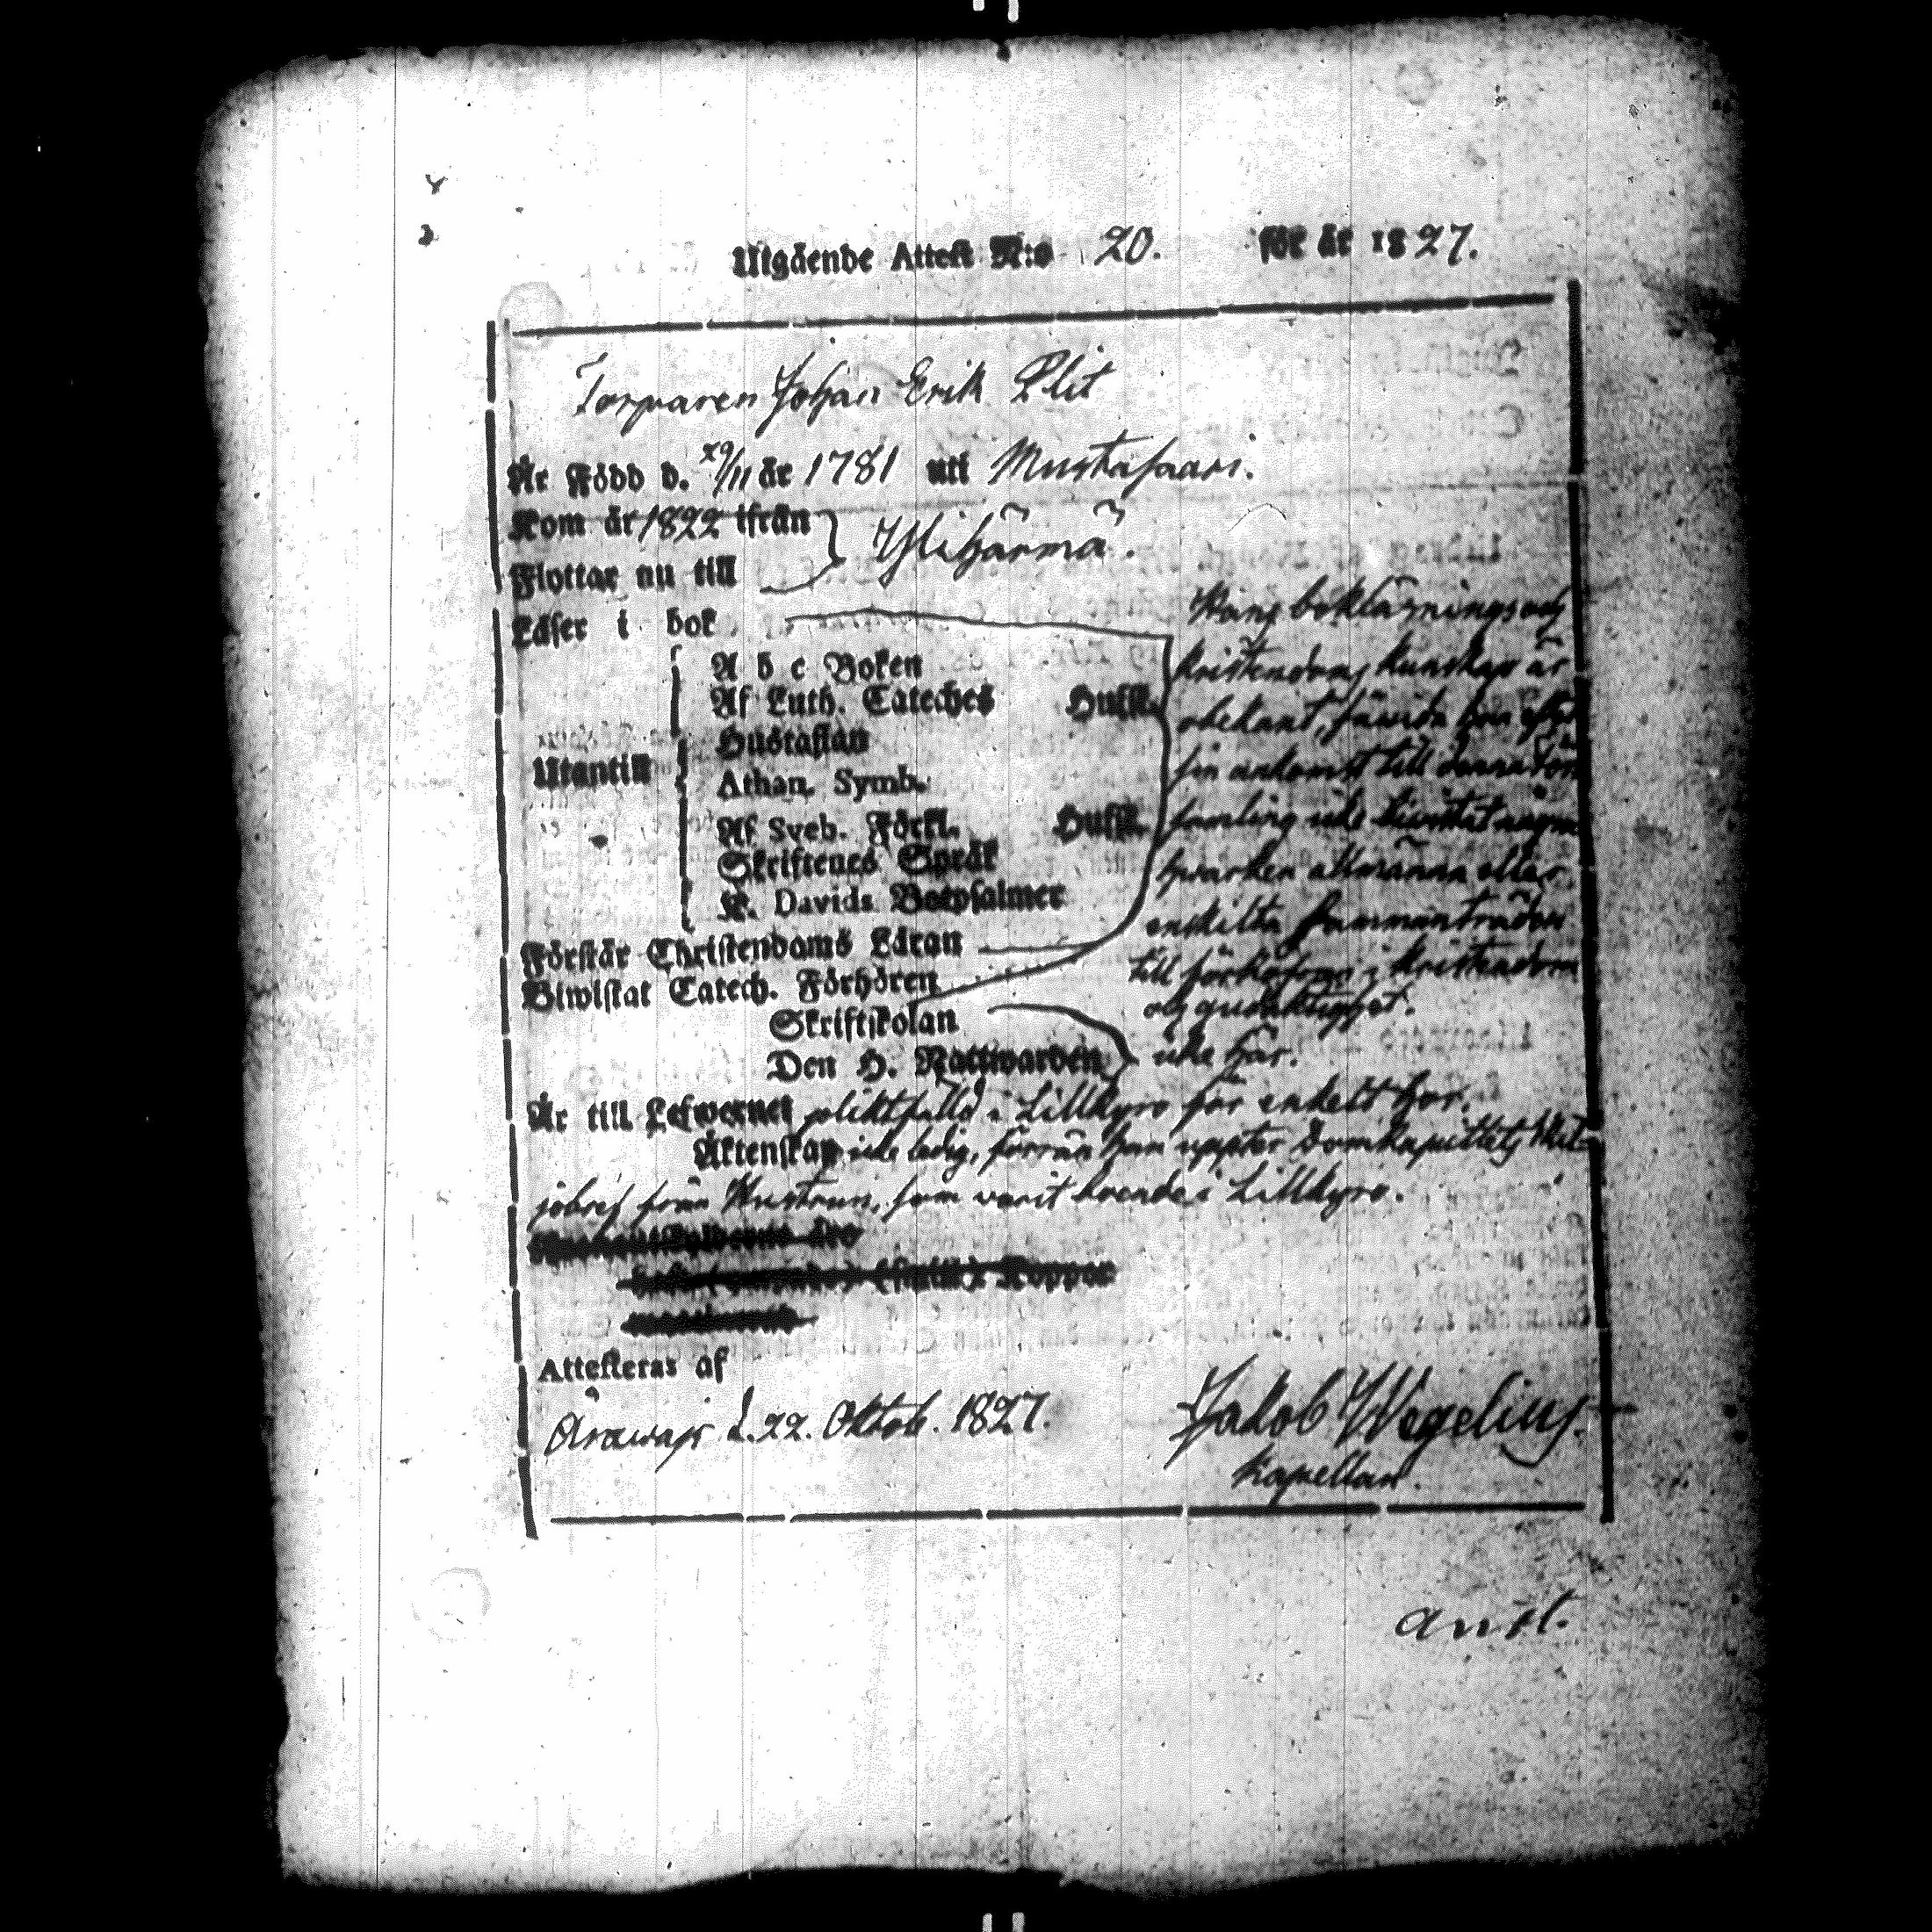 Utgående Attest N:o 20. för år 1827.
Torparen Johan Erik Plit
Är Född d. 29/11 år 1781 uti Mustasaari.
Kom år 1822 ifrån
Flyttar nu till
Ylihärmä.
Läser i bok
Utantill
A b c Boken
Af Luth. Cateches
Hustaflan
Athan. Symb.
Af Sveb. Förkl.
Skriftenes Språk
K. Davids Botpsalmer
Förstår Christendoms Läran
Biwistat Catech. Förhören
Skriftskolan
Den H. Nattwarden
Hans bokläsnings och
kristendoms kunskap är
obekant, emedan han efter
sin ankomst till denna för-
samling icke biwistat någon
hwarken allmänna eller
enskilta sammanträden
till förkofran i kristendom
och gudaktighet.
icke här.
Är till Lefwernet pliktfälld i Lillkyro för enkelt hor.
Äktenskap icke ledig, förrän han uppter Domkapitlets skil-
jobref från Hustrun, som varit boende i Lillkyro.
Koppor
Attesteras af
d. 22. Oktob. 1827.
Jakob Wegelius.
Kapellan.